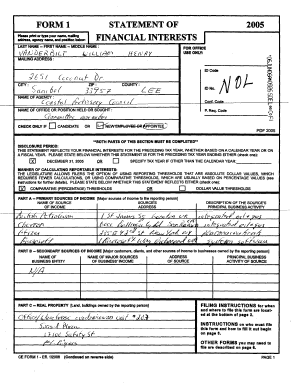 FORM 1 STATEMENT OF 2005
FINANCIAL INTERESTS
Please print or type your name, mailing address, agency name, and position below:
LAST NAME - FIRST NAME - MIDDLE NAME:
VANDERBILT WILLIAM HENRY
MAILING ADDRESS:
2651 Coconut Dr
CITY: ZIP: COUNTY:
Sanibel 33957 LEE
NAME OF AGENCY:
NAME OF OFFICE OR POSITION HELD OR SOUGHT:
Committee
CHECK ONLY IF CANDIDATE OR NEW EMPLOYEE OR APPOINTEE
FOR OFFICE USE ONLY:
ID Code
ID No.
NOL
Conf. Code
P. Req. Code
PDF 2005
**BOTH PARTS OF THIS SECTION MUST BE COMPLETED**
DISCLOSURE PERIOD:
THIS STATEMENT REFLECTS YOUR FINANCIAL INTERESTS FOR THE PRECEDING TAX YEAR, WHETHER BASED ON A CALENDAR YEAR OR ON
A FISCAL YEAR. PLEASE STATE BELOW WHETHER THIS STATEMENT IS FOR THE PRECEDING TAX YEAR ENDING EITHER (check one):
DECEMBER 31, 2005 OR SPECIFY TAX YEAR IF OTHER THAN THE CALENDAR YEAR:
MANNER OF CALCULATING REPORTABLE INTERESTS:
THE LEGISLATURE ALLOWS FILERS THE OPTION OF USING REPORTING THRESHOLDS THAT ARE ABSOLUTE DOLLAR VALUES, WHICH
REQUIRES FEWER CALCULATIONS, OR USING COMPARATIVE THRESHOLDS, WHICH ARE USUALLY BASED ON PERCENTAGE VALUES (see
instructions for further details). PLEASE STATE BELOW WHETHER THIS STATEMENT REFLECTS EITHER (check one):
COMPARATIVE (PERCENTAGE) THRESHOLDS OR DOLLAR VALUE THRESHOLDS
PART A -- PRIMARY SOURCES OF INCOME [Major sources of income to the reporting person]
NAME OF SOURCE OF INCOME SOURCE'S ADDRESS DESCRIPTION OF THE SOURCE'S PRINCIPAL BUSINESS ACTIVITY
British Petroleum 1 St James Sq London UK integrated oil gas
Chevron integrated oil gas
Pfizer
Microsoft systems software
PART B -- SECONDARY SOURCES OF INCOME [Major customers, clients, and other sources of income to businesses owned by the reporting person]
NAME OF BUSINESS ENTITY NAME OF MAJOR SOURCES OF BUSINESS' INCOME ADDRESS OF SOURCE PRINCIPAL BUSINESS ACTIVITY OF SOURCE
N/A
PART C -- REAL PROPERTY [Land, buildings owned by the reporting person]
Office/Warehouse condominium unit #207
FILING INSTRUCTIONS for when and where to file this form are located at the bottom of page 2.
INSTRUCTIONS on who must file this form and how to fill it out begin on page 3.
OTHER FORMS you may need to file are described on page 6.
CE FORM 1 - Eff. 1/2006 (Continued on reverse side) PAGE 1